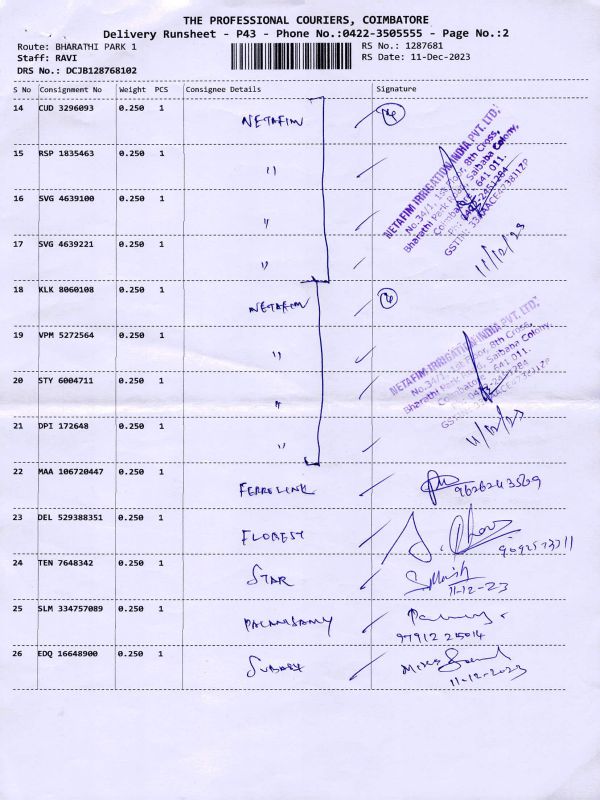 THE PROFESSIONAL COURIERS, COIMBATORE
Delivery Runsheet - P43 - Phone No.:0422-3505555 - Page No.:2
Route: BHARATHI PARK 1
RS No.: 1287681
Staff: RAVI
RS Date: 11-Dec-2023
DRS No.: DCJB128768102
S No Consignment No Weight PCS Consignee Details Signature
14 CUD 3296093 0.250 1 NETAFIM 4
15 RSP 1835463 0.250 1 "
16 SVG 4639100 0.250 1 "
17 SVG 4639221 0.250 1 "
NETAFIM IRRIGATION INDIA PVT. LTD.
No.34/1, 1st Floor, 8th Cross,
Bharathi Park Road, Saibaba Colony,
Coimbatore - 641 011.
11/12/23
18 KLK 8060108 0.250 1 NETAFIM 4
19 VPM 5272564 0.250 1 "
20 STY 6004711 0.250 1 "
21 DPI 172648 0.250 1 "
NETAFIM IRRIGATION INDIA PVT. LTD.
No.34/1, 1st Floor, 8th Cross,
Bharathi Park Road, Saibaba Colony,
Coimbatore - 641 011.
11/12/23
22 MAA 106720447 0.250 1 FERROLINK 9626243569
23 DEL 529388351 0.250 1 FLOREST
24 TEN 7648342 0.250 1 STAR
11-12-23
25 SLM 334757089 0.250 1 PALANISAMY
26 EDQ 16648900 0.250 1
11-12-2023